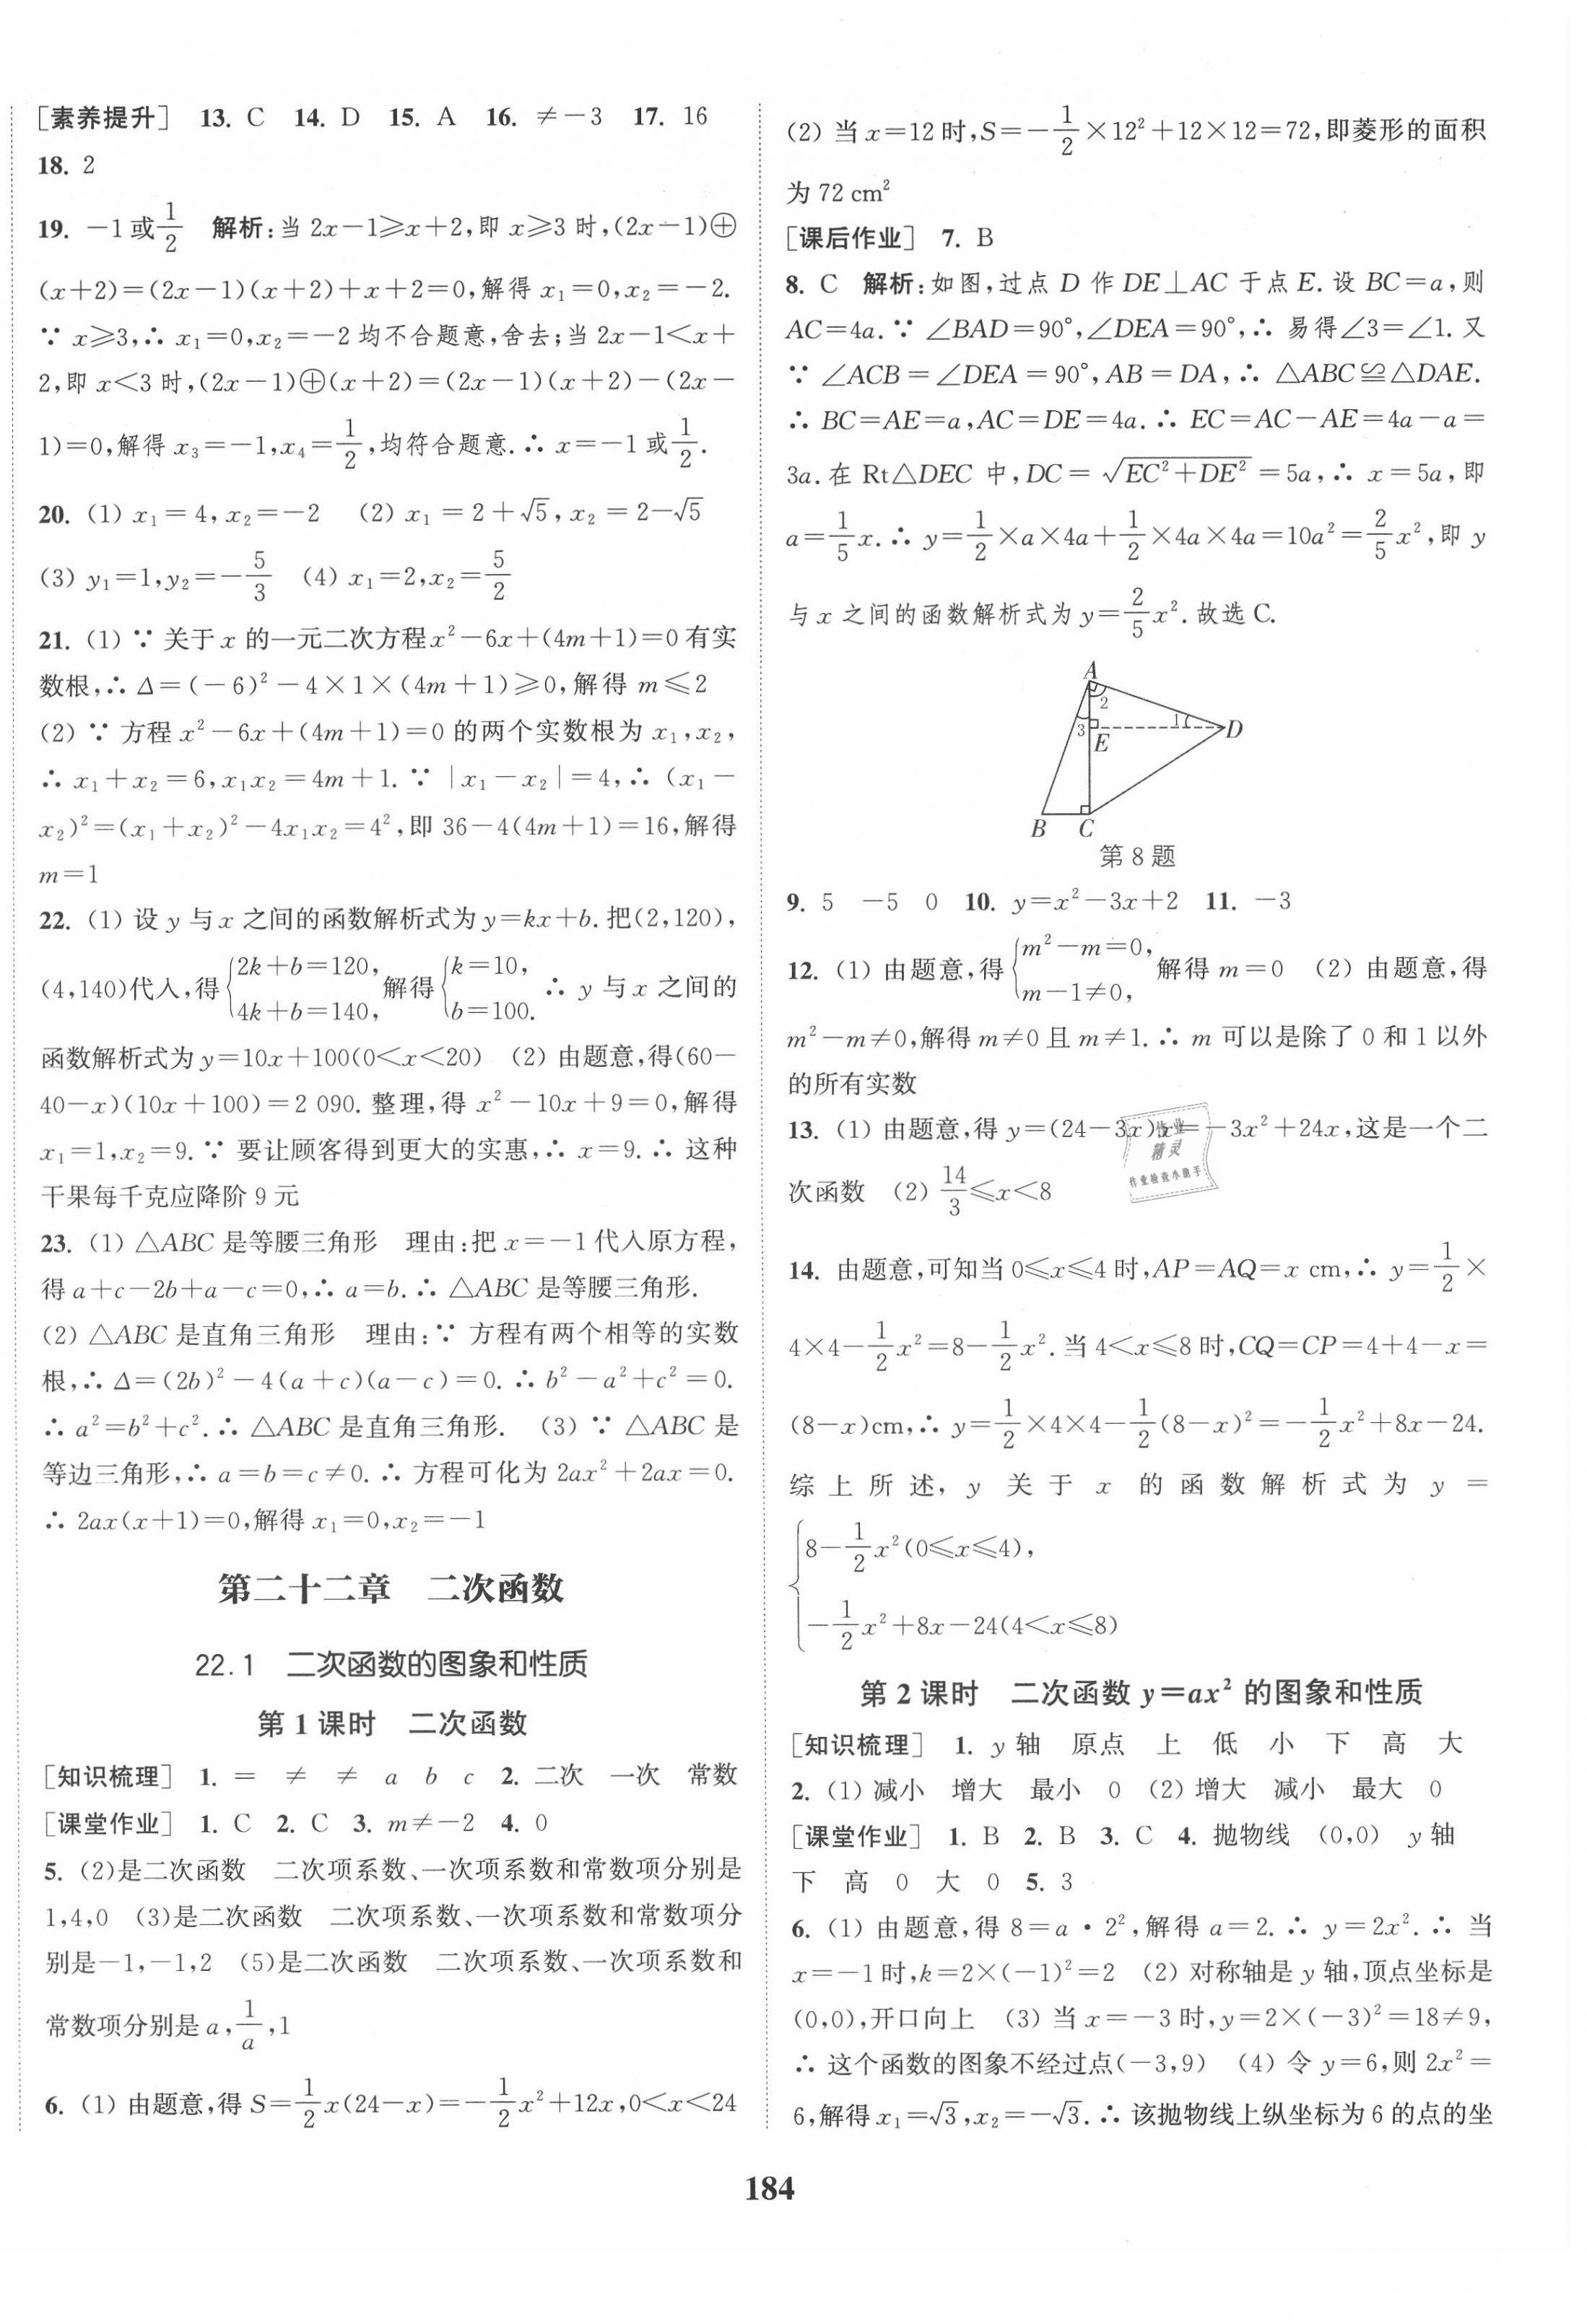 ［素养提升］ 13. C 14. D 15. A 16. ≠－3 17. 16
18. 2
19. －1或1/2 解析:当 2x－1≥x＋2,即 x≥3 时,(2x－1)⊕
(x＋2)＝(2x－1)(x＋2)＋x＋2＝0,解得 x₁＝0,x₂＝－2.
∵ x≥3,∴ x₁＝0,x₂＝－2 均不合题意,舍去;当 2x－1＜x＋
2,即 x＜3 时,(2x－1)⊕(x＋2)＝(2x－1)(x＋2)－(2x－
1)＝0,解得 x₃＝－1,x₄＝1/2,均符合题意.∴ x＝－1 或1/2.
20. (1) x₁＝4,x₂＝－2 (2) x₁＝2＋√5,x₂＝2－√5
(3) y₁＝1,y₂＝－5/3 (4) x₁＝2,x₂＝5/2
21. (1) ∵ 关于 x 的一元二次方程x²－6x＋(4m＋1)＝0 有实
数根,∴ Δ＝(－6)²－4×1×(4m＋1)≥0,解得 m≤2
(2) ∵ 方程 x²－6x＋(4m＋1)＝0 的两个实数根为 x₁,x₂,
∴ x₁＋x₂＝6,x₁x₂＝4m＋1. ∵ |x₁－x₂|＝4,∴ (x₁－
x₂)²＝(x₁＋x₂)²－4x₁x₂＝4²,即 36－4(4m＋1)＝16,解得
m＝1
22. (1) 设 y 与 x 之间的函数解析式为 y＝kx＋b. 把(2,120),
(4,140)代入,得{2k＋b＝120, 4k＋b＝140, 解得{k＝10, b＝100. ∴ y 与 x 之间的
函数解析式为 y＝10x＋100(0＜x＜20) (2) 由题意,得(60－
40－x)(10x＋100)＝2 090. 整理,得 x²－10x＋9＝0,解得
x₁＝1,x₂＝9. ∵ 要让顾客得到更大的实惠,∴ x＝9. ∴ 这种
干果每千克应降阶 9 元
23. (1) △ABC 是等腰三角形 理由:把 x＝－1 代入原方程,
得 a＋c－2b＋a－c＝0,∴ a＝b. ∴ △ABC 是等腰三角形.
(2) △ABC 是直角三角形 理由:∵ 方程有两个相等的实数
根,∴ Δ＝(2b)²－4(a＋c)(a－c)＝0. ∴ b²－a²＋c²＝0.
∴ a²＝b²＋c². ∴ △ABC 是直角三角形. (3) ∵ △ABC 是
等边三角形,∴ a＝b＝c≠0. ∴ 方程可化为 2ax²＋2ax＝0.
∴ 2ax(x＋1)＝0,解得 x₁＝0,x₂＝－1
第二十二章 二次函数
22.1 二次函数的图象和性质
第 1 课时 二次函数
［知识梳理］ 1. ＝ ≠ ≠ a b c 2. 二次 一次 常数
［课堂作业］ 1. C 2. C 3. m≠－2 4. 0
5. (2)是二次函数 二次项系数、一次项系数和常数项分别是
1,4,0 (3)是二次函数 二次项系数、一次项系数和常数项分
别是－1,－1,2 (5)是二次函数 二次项系数、一次项系数和
常数项分别是 a,1/a,1
6. (1) 由题意,得 S＝1/2x(24－x)＝－1/2x²＋12x,0＜x＜24
(2) 当 x＝12 时,S＝－1/2×12²＋12×12＝72,即菱形的面积
为 72 cm²
［课后作业］ 7. B
8. C 解析:如图,过点 D 作 DE⊥AC 于点 E. 设 BC＝a,则
AC＝4a. ∵ ∠BAD＝90°,∠DEA＝90°,∴ 易得∠3＝∠1. 又
∵ ∠ACB＝∠DEA＝90°,AB＝DA,∴ △ABC≌△DAE.
∴ BC＝AE＝a,AC＝DE＝4a. ∴ EC＝AC－AE＝4a－a＝
3a. 在 Rt△DEC 中,DC＝√(EC²＋DE²)＝5a,∴ x＝5a,即
a＝1/5x. ∴ y＝1/2×a×4a＋1/2×4a×4a＝10a²＝2/5x²,即 y
与 x 之间的函数解析式为 y＝2/5x². 故选 C.
A
2
3
1
E
D
B C
第 8 题
9. 5 －5 0 10. y＝x²－3x＋2 11. －3
12. (1) 由题意,得{m²－m＝0, m－1≠0, 解得 m＝0 (2) 由题意,得
m²－m≠0,解得 m≠0 且 m≠1. ∴ m 可以是除了 0 和 1 以外
的所有实数
13. (1) 由题意,得 y＝(24－3x)x＝－3x²＋24x,这是一个二
次函数 (2) 14/3≤x＜8
作业
精灵
作业检查小助手
14. 由题意,可知当 0≤x≤4 时,AP＝AQ＝x cm,∴ y＝1/2×
4×4－1/2x²＝8－1/2x². 当 4＜x≤8 时,CQ＝CP＝4＋4－x＝
(8－x)cm,∴ y＝1/2×4×4－1/2(8－x)²＝－1/2x²＋8x－24.
综上所述, y 关于 x 的函数解析式为 y＝
{8－1/2x²(0≤x≤4),
－1/2x²＋8x－24(4＜x≤8)
第 2 课时 二次函数 y＝ax² 的图象和性质
［知识梳理］ 1. y 轴 原点 上 低 小 下 高 大
2. (1) 减小 增大 最小 0 (2) 增大 减小 最大 0
［课堂作业］ 1. B 2. B 3. C 4. 抛物线 (0,0) y 轴
下 高 0 大 0 5. 3
6. (1) 由题意,得 8＝a·2²,解得 a＝2. ∴ y＝2x². ∴ 当
x＝－1 时,k＝2×(－1)²＝2 (2) 对称轴是 y 轴,顶点坐标是
(0,0),开口向上 (3) 当 x＝－3 时,y＝2×(－3)²＝18≠9,
∴ 这个函数的图象不经过点(－3,9) (4) 令 y＝6,则 2x²＝
6,解得 x₁＝√3,x₂＝－√3. ∴ 该抛物线上纵坐标为 6 的点的坐
184